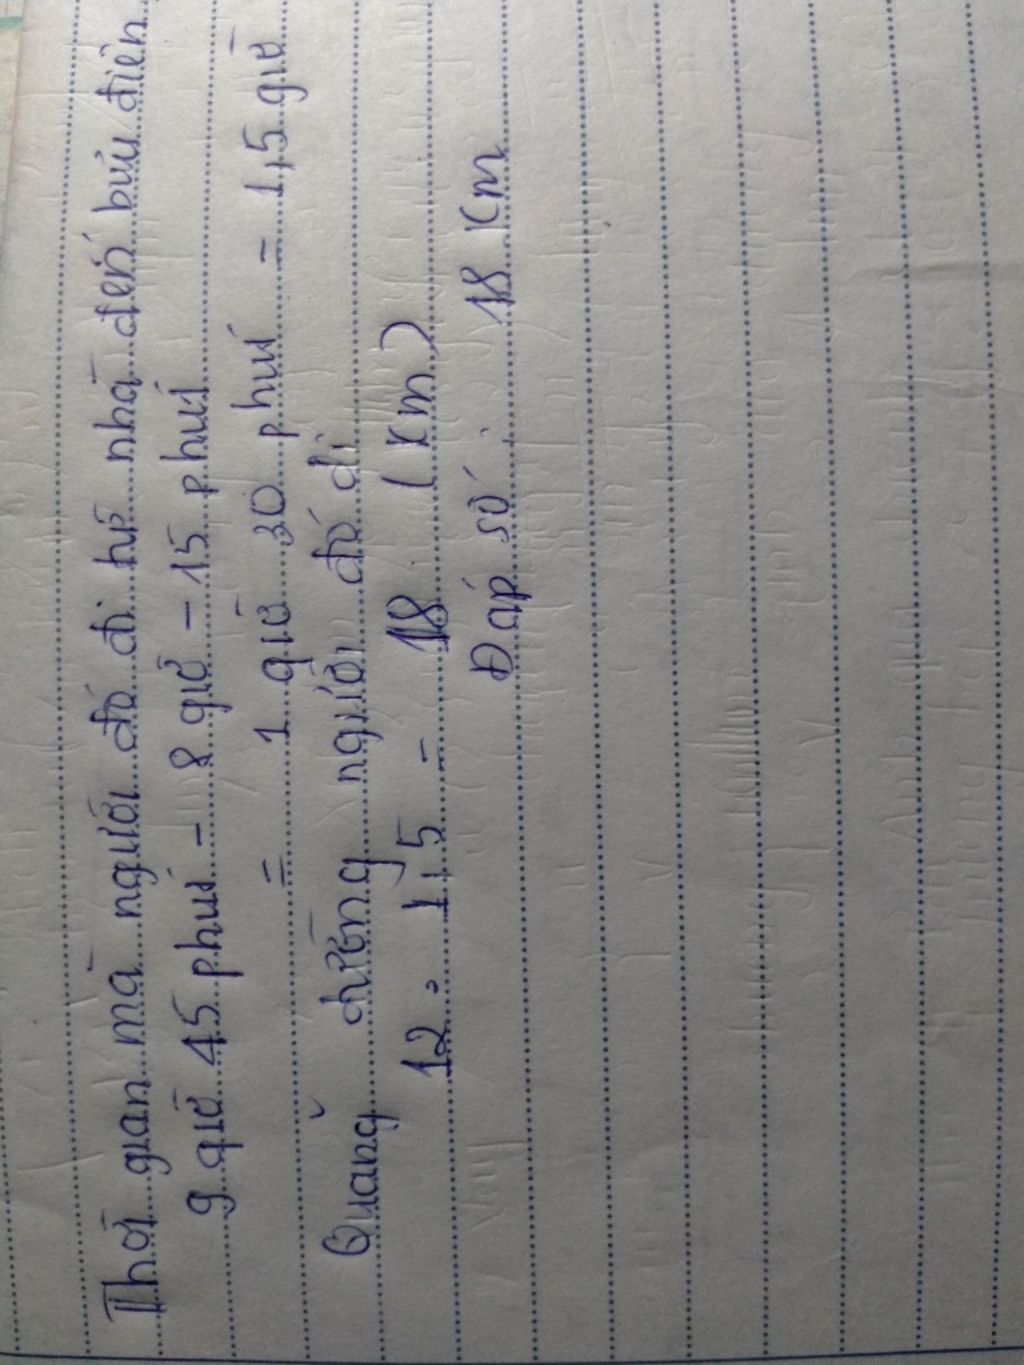 Thời gian mà người đó đi từ nhà đến bưu điện
9 giờ 45 phút - 8 giờ - 15 phút
= 1 giờ 30 phút = 1,5 giờ
Quãng đường người đó đi
12 . 1,5 = 18 (km)
Đáp số : 18 km